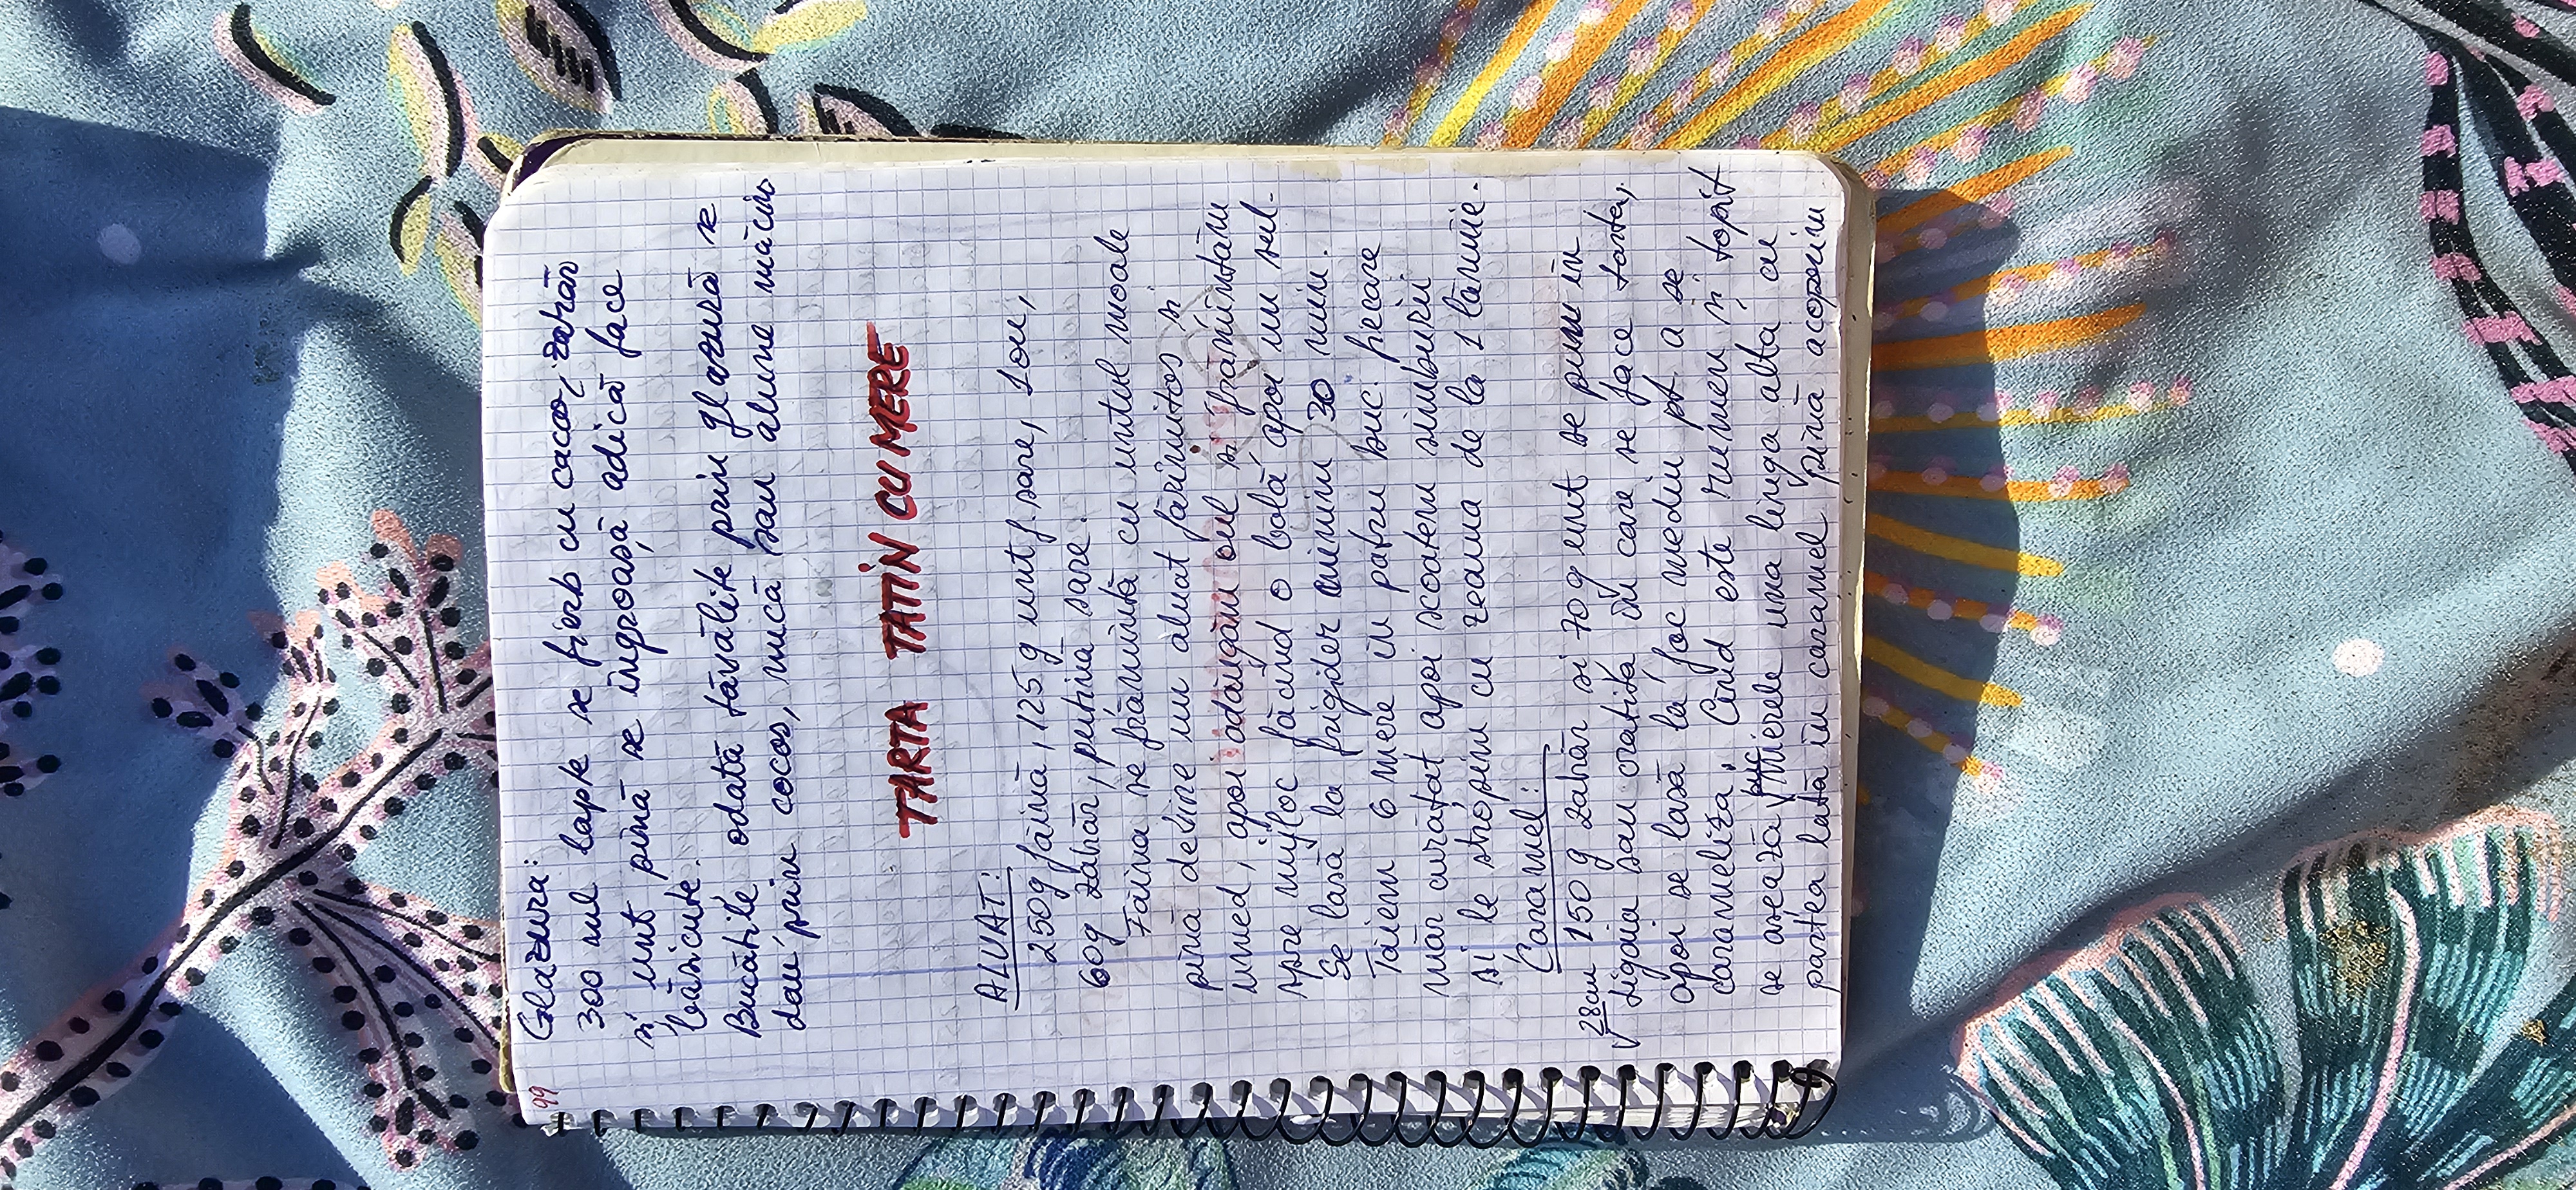 99
Glazura:
300 ml lapte se fierb cu cacao, zahăr
și unt pînă se îngroașă adică face
bășicuțe.
Bucățile odată tăvălite prin glazură se
dau prin cocos, nucă sau alune măcin
TARTA TATIN CU MERE
ALUAT:
250g făină, 125 g unt f. sare, 1 ou,
60g zahăr, puțină sare.
Făina se frămîntă cu untul moale
pînă devine un aluat fărîmitos și
umed, apoi adăugăm oul și frămîntăm
spre mijloc făcînd o bolă apoi un sul.
Se lasă la frigider minim 30 min.
Tăiem 6 mere în patru buc. fiecare
măr curățat apoi scoatem simburii
și le stropim cu zeama de la 1 lămîie.
Caramel:
28cm 150 g zahăr și 70 g unt se pun în
√ tigaia sau cratița în care se face tarta,
apoi se lasă la foc mediu pt. a se
carameliza. Cînd este rumen și topit
buc.
se așează √ merele una lînga alta cu
partea lată în caramel pînă acoperim